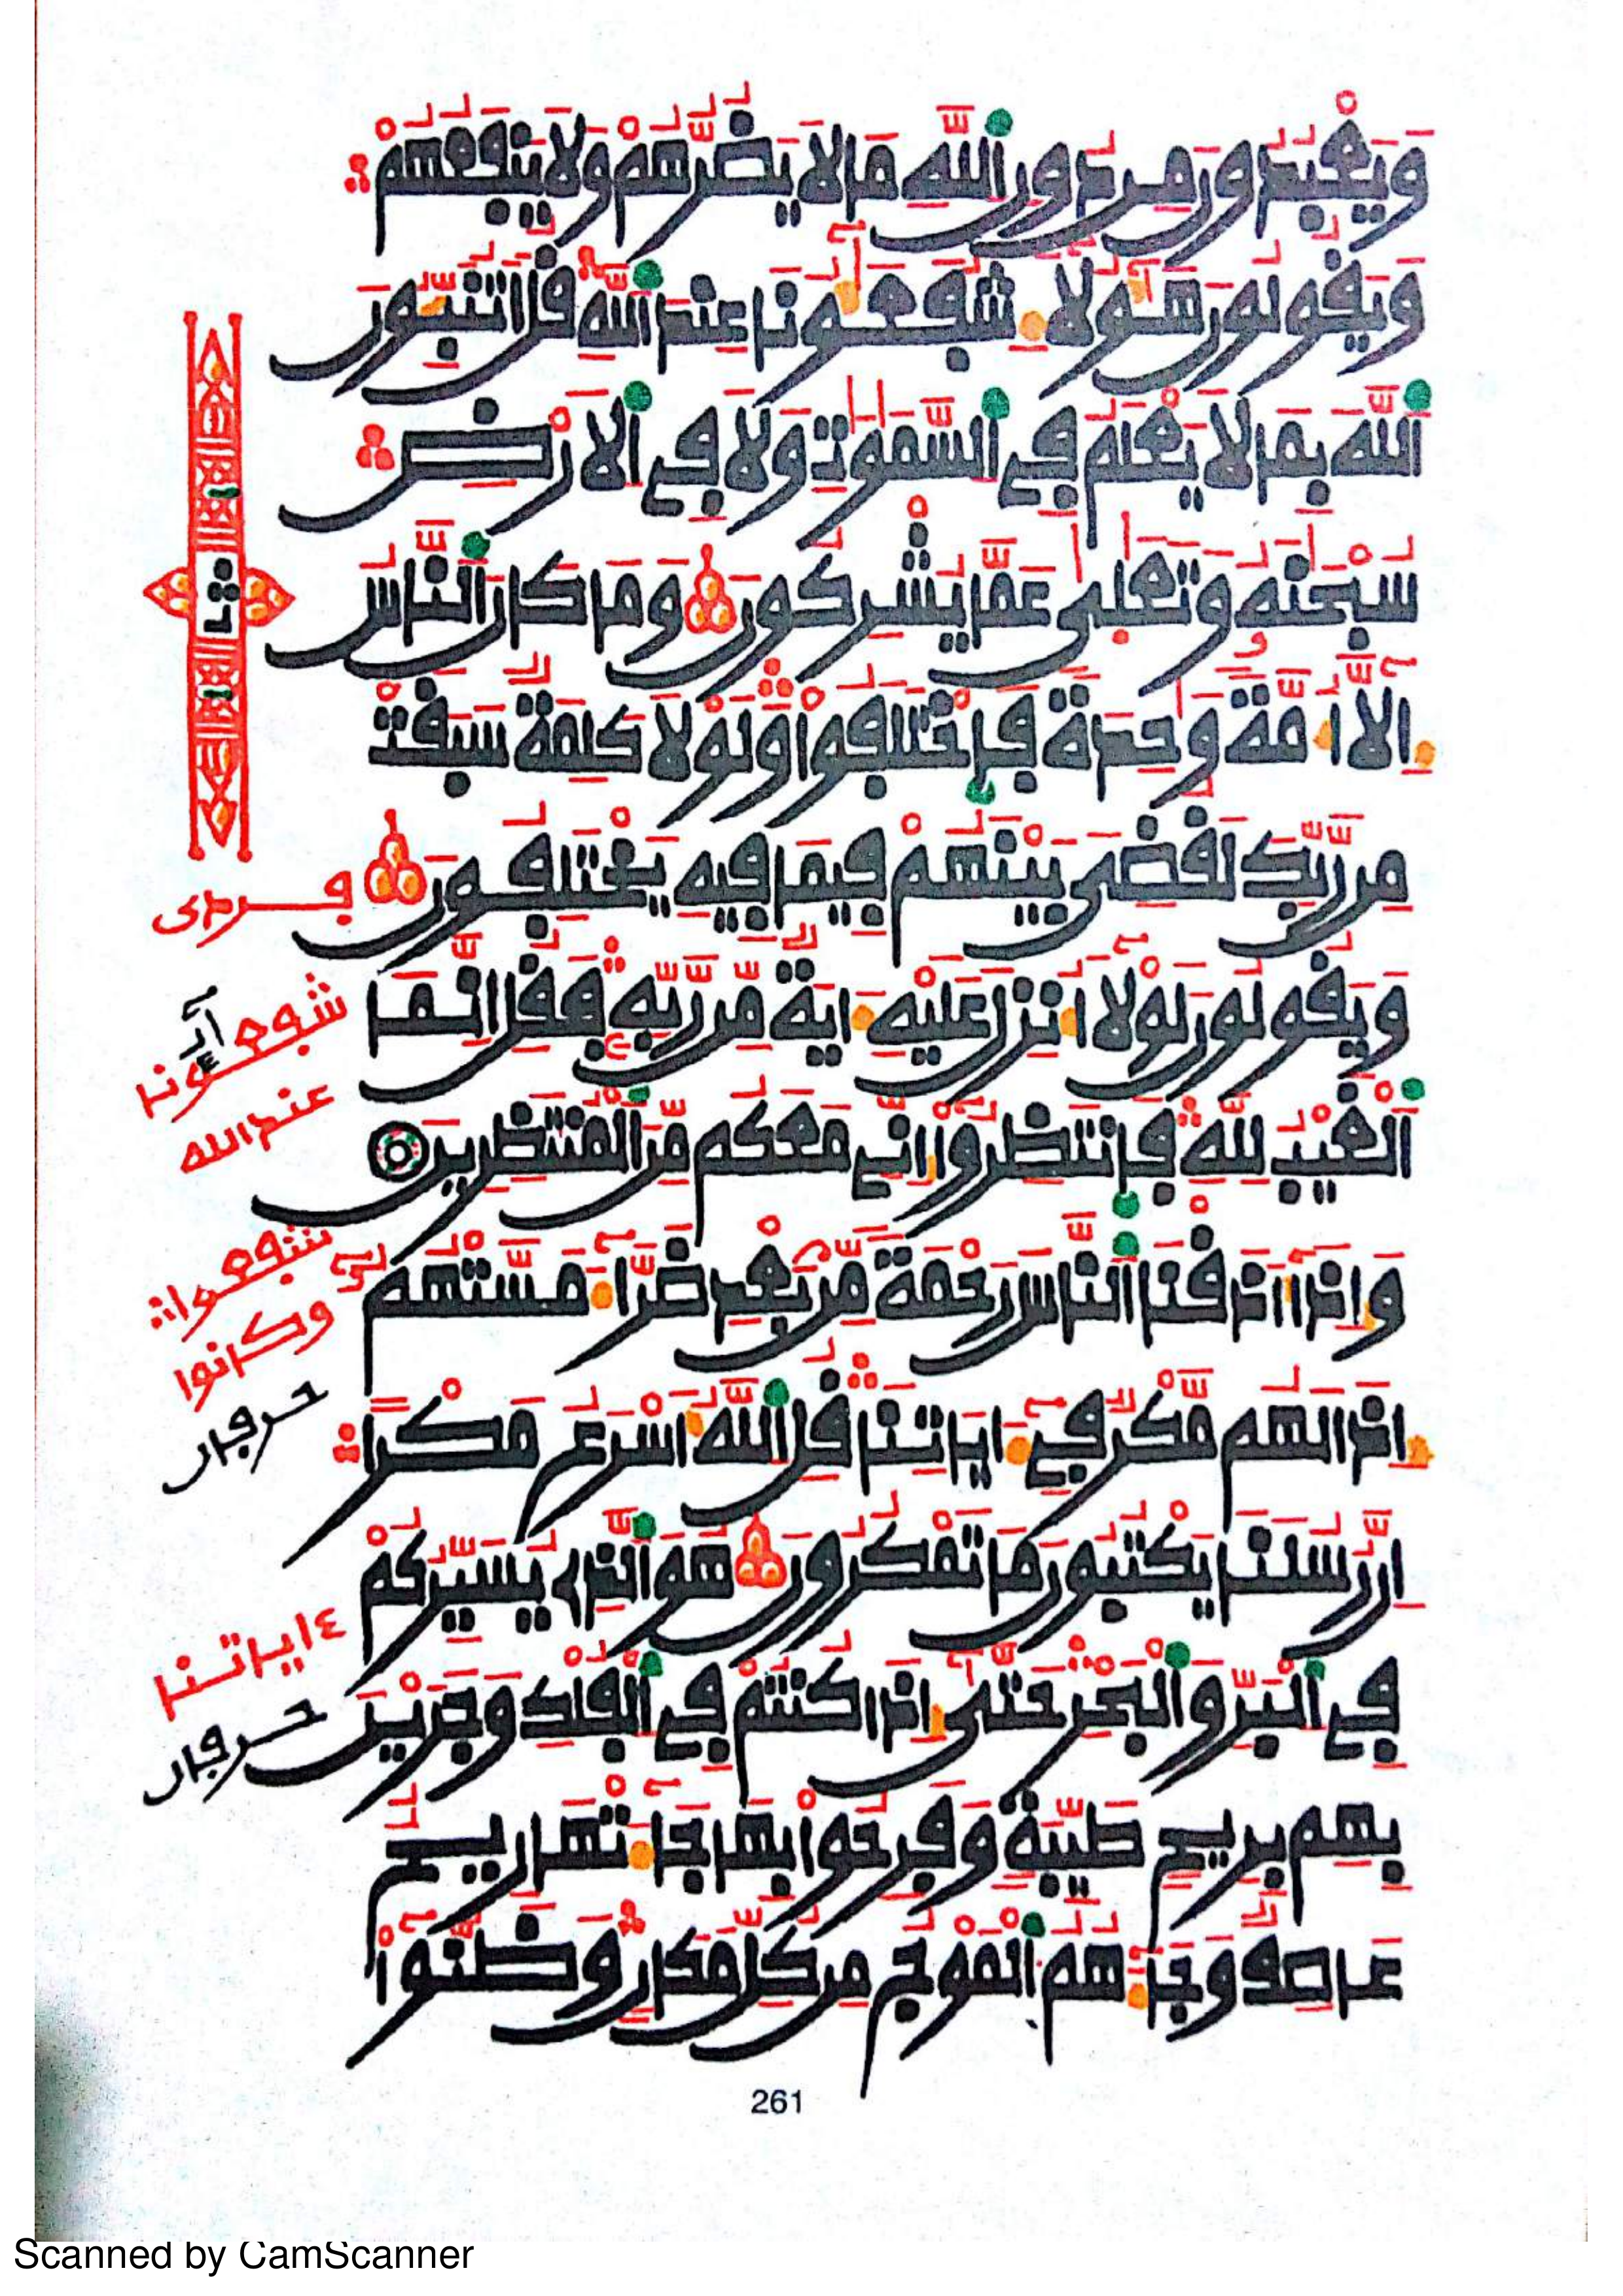 وَيَعْبُدُونَ مِن دُونِ اللَّهِ مَا لَا يَضُرُّهُمْ وَلَا يَنفَعُهُمْ
وَيَقُولُونَ هَٰؤُلَاءِ شُفَعَٰؤُنَا عِندَ اللَّهِ قُلْ أَتُنَبِّـُٔونَ
اللَّهَ بِمَا لَا يَعْلَمُ فِي السَّمَٰوَٰتِ وَلَا فِي الْأَرْضِ
سُبْحَٰنَهُ وَتَعَٰلَىٰ عَمَّا يُشْرِكُونَ وَمَا كَانَ النَّاسُ
إِلَّا أُمَّةً وَٰحِدَةً فَاخْتَلَفُوا وَلَوْلَا كَلِمَةٌ سَبَقَتْ
مِن رَّبِّكَ لَقُضِيَ بَيْنَهُمْ فِيمَا فِيهِ يَخْتَلِفُونَ
وَيَقُولُونَ لَوْلَا أُنزِلَ عَلَيْهِ ءَايَةٌ مِّن رَّبِّهِ فَقُلْ إِنَّمَا
الْغَيْبُ لِلَّهِ فَانتَظِرُوا إِنِّي مَعَكُم مِّنَ الْمُنتَظِرِينَ
وَإِذَا أَذَقْنَا النَّاسَ رَحْمَةً مِّن بَعْدِ ضَرَّاءَ مَسَّتْهُمْ
إِذَا لَهُم مَّكْرٌ فِي ءَايَاتِنَا قُلِ اللَّهُ أَسْرَعُ مَكْرًا
إِنَّ رُسُلَنَا يَكْتُبُونَ مَا تَمْكُرُونَ هُوَ الَّذِي يُسَيِّرُكُمْ
فِي الْبَرِّ وَالْبَحْرِ حَتَّىٰ إِذَا كُنتُمْ فِي الْفُلْكِ وَجَرَيْنَ
بِهِم بِرِيحٍ طَيِّبَةٍ وَفَرِحُوا بِهَا جَاءَتْهَا رِيحٌ
عَاصِفٌ وَجَاءَهُمُ الْمَوْجُ مِن كُلِّ مَكَانٍ وَظَنُّوا
ثمن
شفعـٰؤنا
عند الله
وكانوا
حرفان
٤ اياتنا
حرفان
261
Scanned by CamScanner